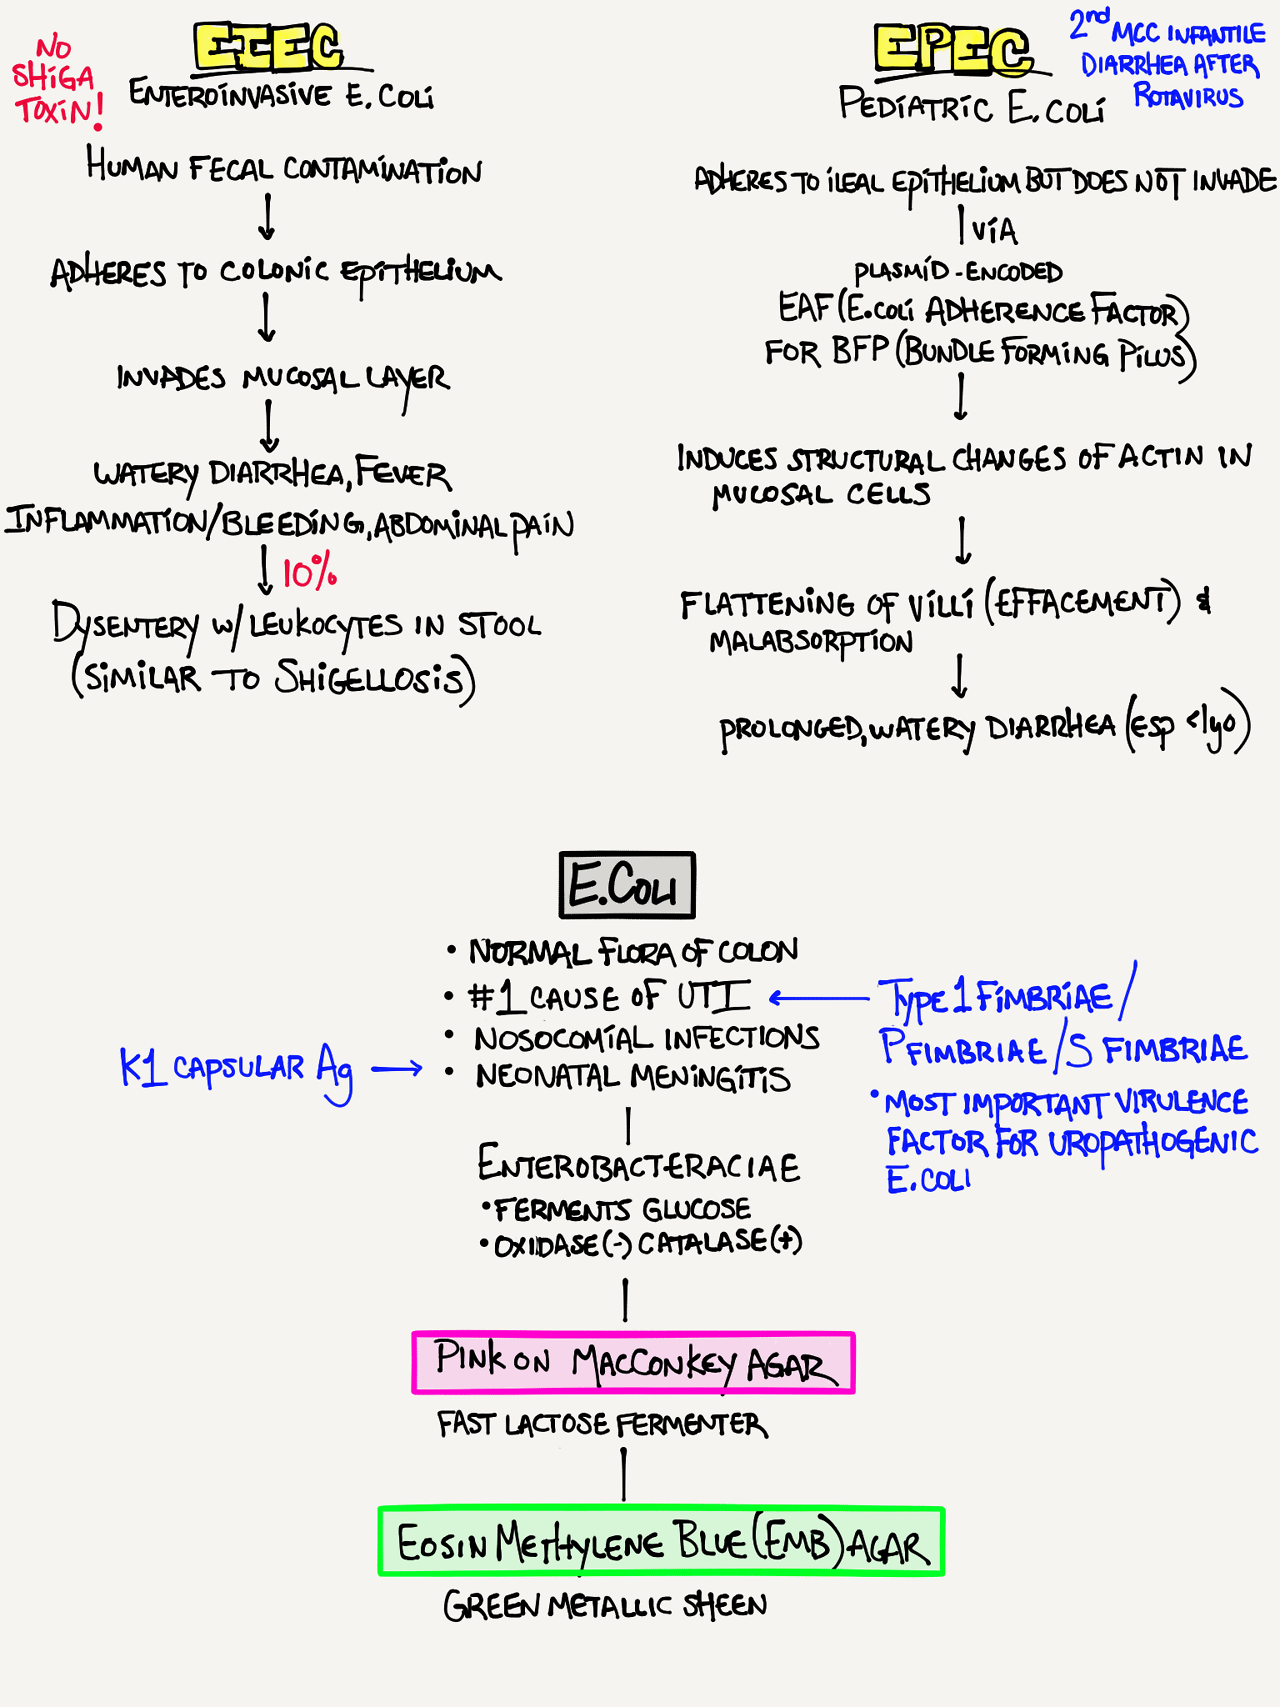 EIEC
NO
SHIGA
TOXIN!
ENTEROINVASIVE E. COLI
HUMAN FECAL CONTAMINATION
ADHERES TO COLONIC EPITHELIUM
INVADES MUCOSAL LAYER
WATERY DIARRHEA, FEVER
INFLAMMATION/BLEEDING, ABDOMINAL PAIN
10%
DYSENTERY W/ LEUKOCYTES IN STOOL
(SIMILAR TO SHIGELLOSIS)
EPEC
2nd MCC INFANTILE
DIARRHEA AFTER
ROTAVIRUS
PEDIATRIC E. COLI
ADHERES TO ILEAL EPITHELIUM BUT DOES NOT INVADE
VIA
PLASMID-ENCODED
EAF (E. COLI ADHERENCE FACTOR)
FOR BFP (BUNDLE FORMING PILUS)
INDUCES STRUCTURAL CHANGES OF ACTIN IN
MUCOSAL CELLS
FLATTENING OF VILLI (EFFACEMENT) &
MALABSORPTION
PROLONGED, WATERY DIARRHEA (ESP <1yo)
E. COLI
• NORMAL FLORA OF COLON
• #1 CAUSE OF UTI
• NOSOCOMIAL INFECTIONS
• NEONATAL MENINGITIS
K1 CAPSULAR Ag
TYPE 1 FIMBRIAE /
P FIMBRIAE / S FIMBRIAE
• MOST IMPORTANT VIRULENCE
FACTOR FOR UROPATHOGENIC
E. COLI
ENTEROBACTERACIAE
• FERMENTS GLUCOSE
• OXIDASE (-) CATALASE (+)
PINK ON MACCONKEY AGAR
FAST LACTOSE FERMENTER
EOSIN METHYLENE BLUE (EMB) AGAR
GREEN METALLIC SHEEN